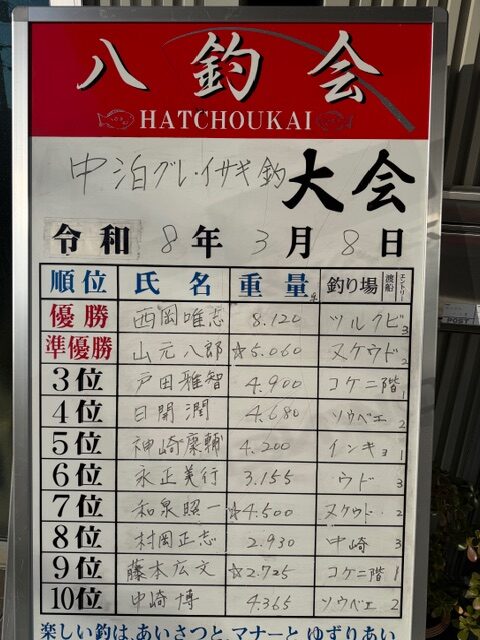 八釣会
HATCHOUKAI
中泊グレ・イサギ釣大会
令和8年3月8日
順位 氏名 重量 釣り場 渡船 エントリー
優勝 西岡唯志 8.120 ツルクビ 3
準優勝 山元八郎 ☆5.060 ヌケウド 2
3位 戸田雅智 4.900 コケ二階 1
4位 日開潤 4.680 ソウベエ 2
5位 神崎慶輔 4.200 インキョ 1
6位 永正美行 3.155 ウド 3
7位 和泉照一 ☆4.500 ヌケウド 2
8位 村岡正志 2.930 中崎 3
9位 藤本広文 ☆2.725 コケ二階 1
10位 中崎博 4.365 ソウベエ 2
楽しい釣は、あいさつと、マナーと ゆずりあい
POST